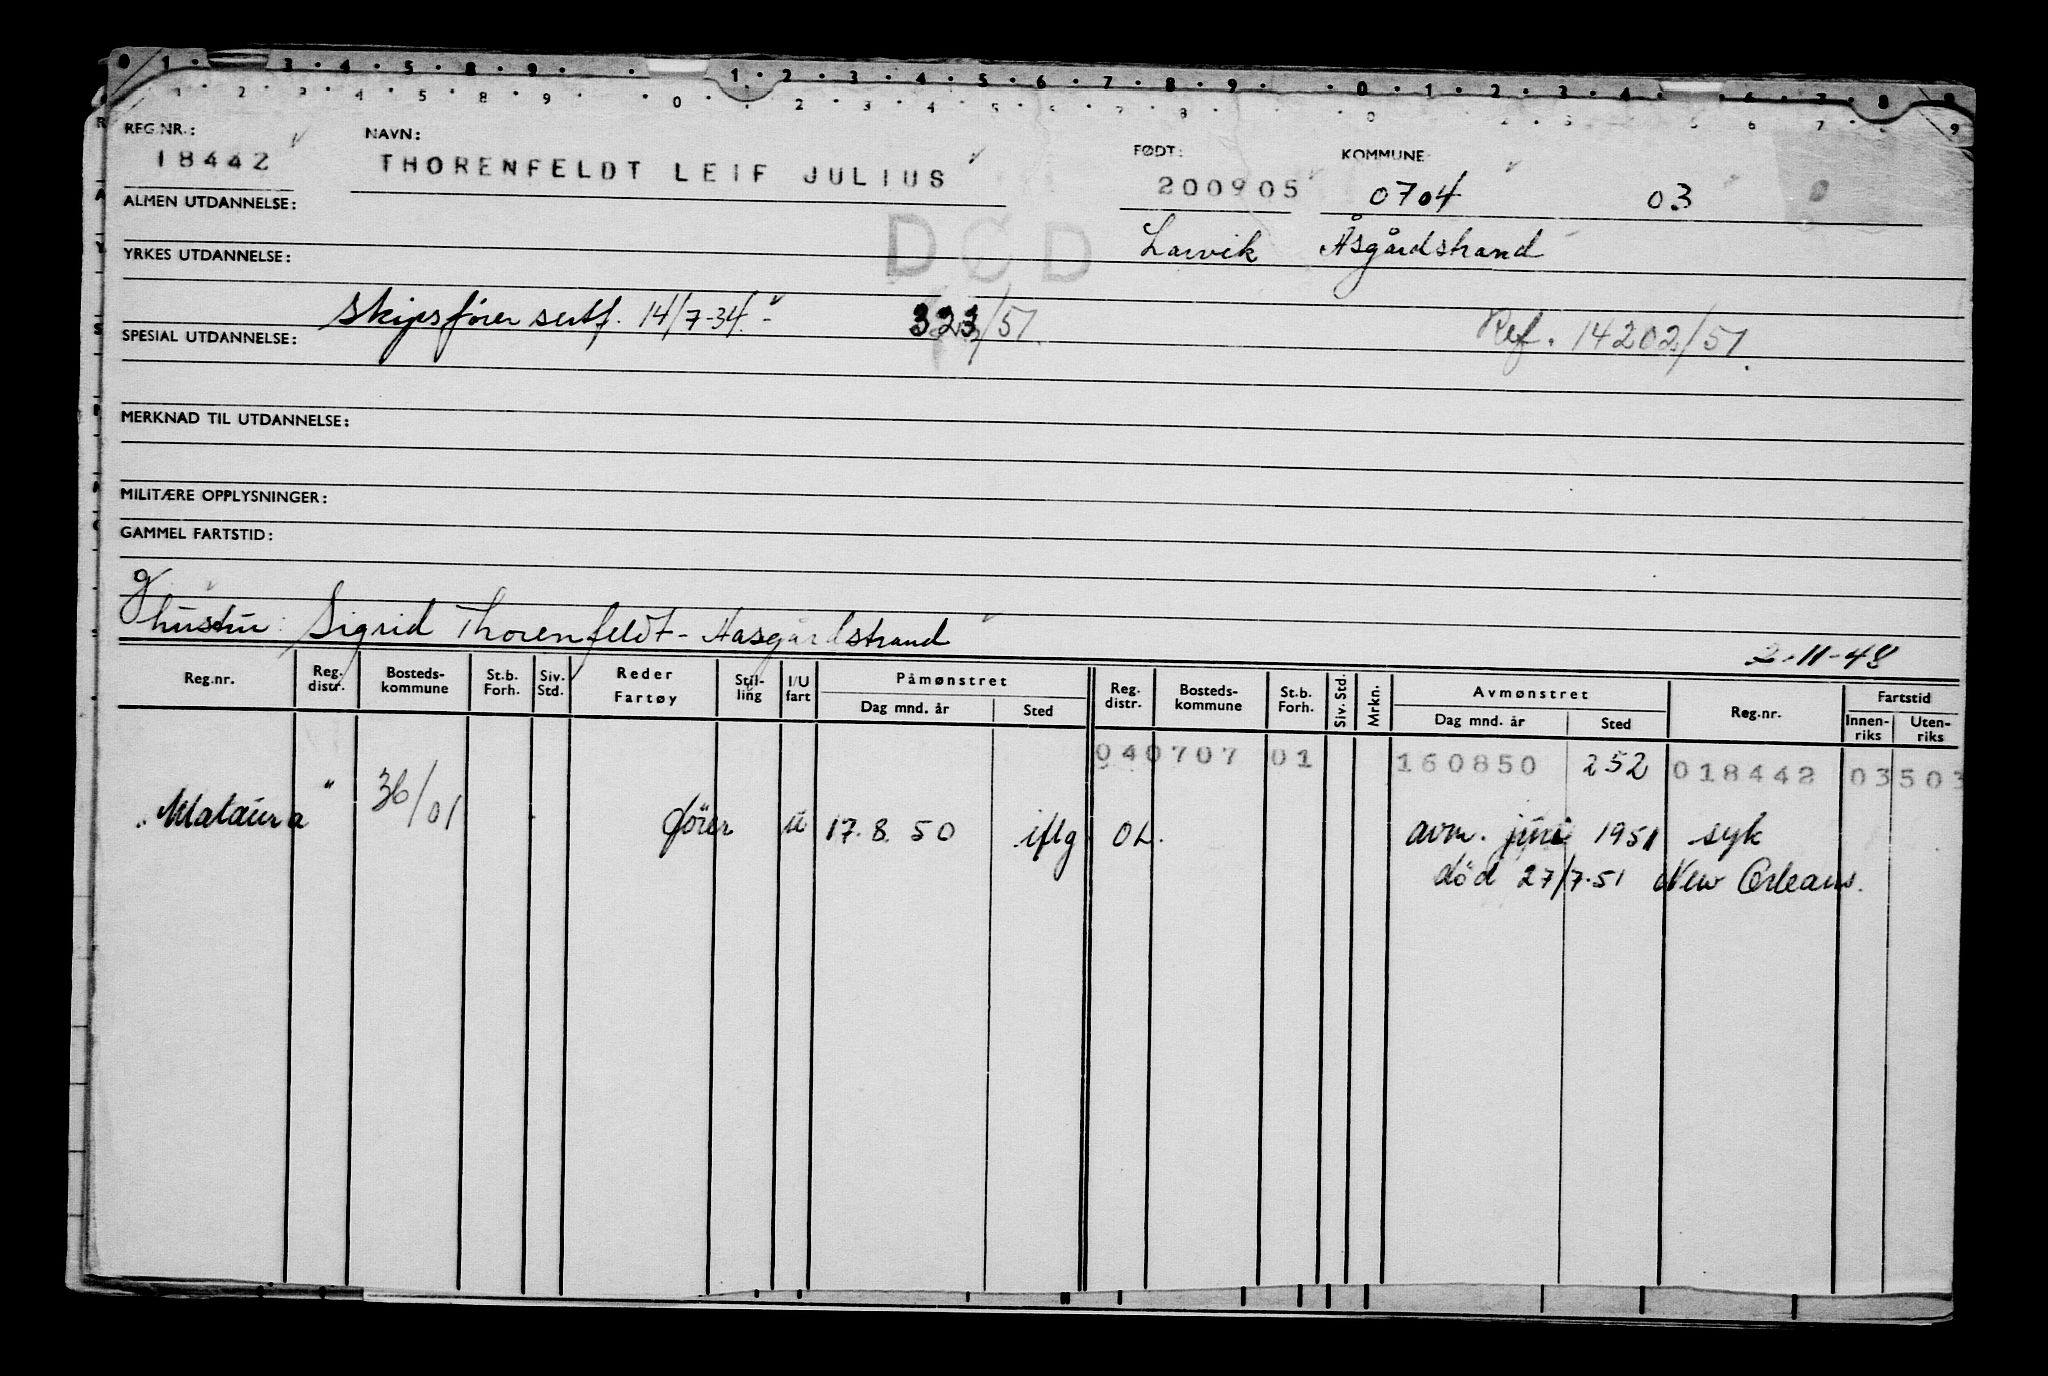 REG.NR.: NAVN: FØDT: KOMMUNE
18442 THORENFELDT LEIF JULIUS 200905 0704 03
ALMEN UTDANNELSE:
DØD Larvik Åsgårdstrand
YRKES UTDANNELSE:
skipsfører sertf. 14/7-34. 323/51. Ref. 14202/51.
SPESIAL UTDANNELSE:
MERKNAD TIL UTDANNELSE:
MILITÆRE OPPLYSNINGER:
GAMMEL FARTSTID:
g
hustru: Sigrid Thorenfeldt - Aasgårdstrand
2-11-48
Reg.nr. Reg. distr. Bosteds-kommune St.b. Forh. Siv. Std. Reder Fartøy Stil-ling I/U fart Påmønstret Dag mnd. år Sted Reg. distr. Bosteds-kommune St.b. Forh. Siv. Std. Mrkn. Avmønstret Dag mnd. år Sted Reg.nr. Fartstid Innen-riks Uten-riks
040707 01 160850 252 018442 03503
"Mataura" 36/01 fører u 17.8.50 iflg OL. avm. juni 1951 syk
død 27/7-51 New Orleans.